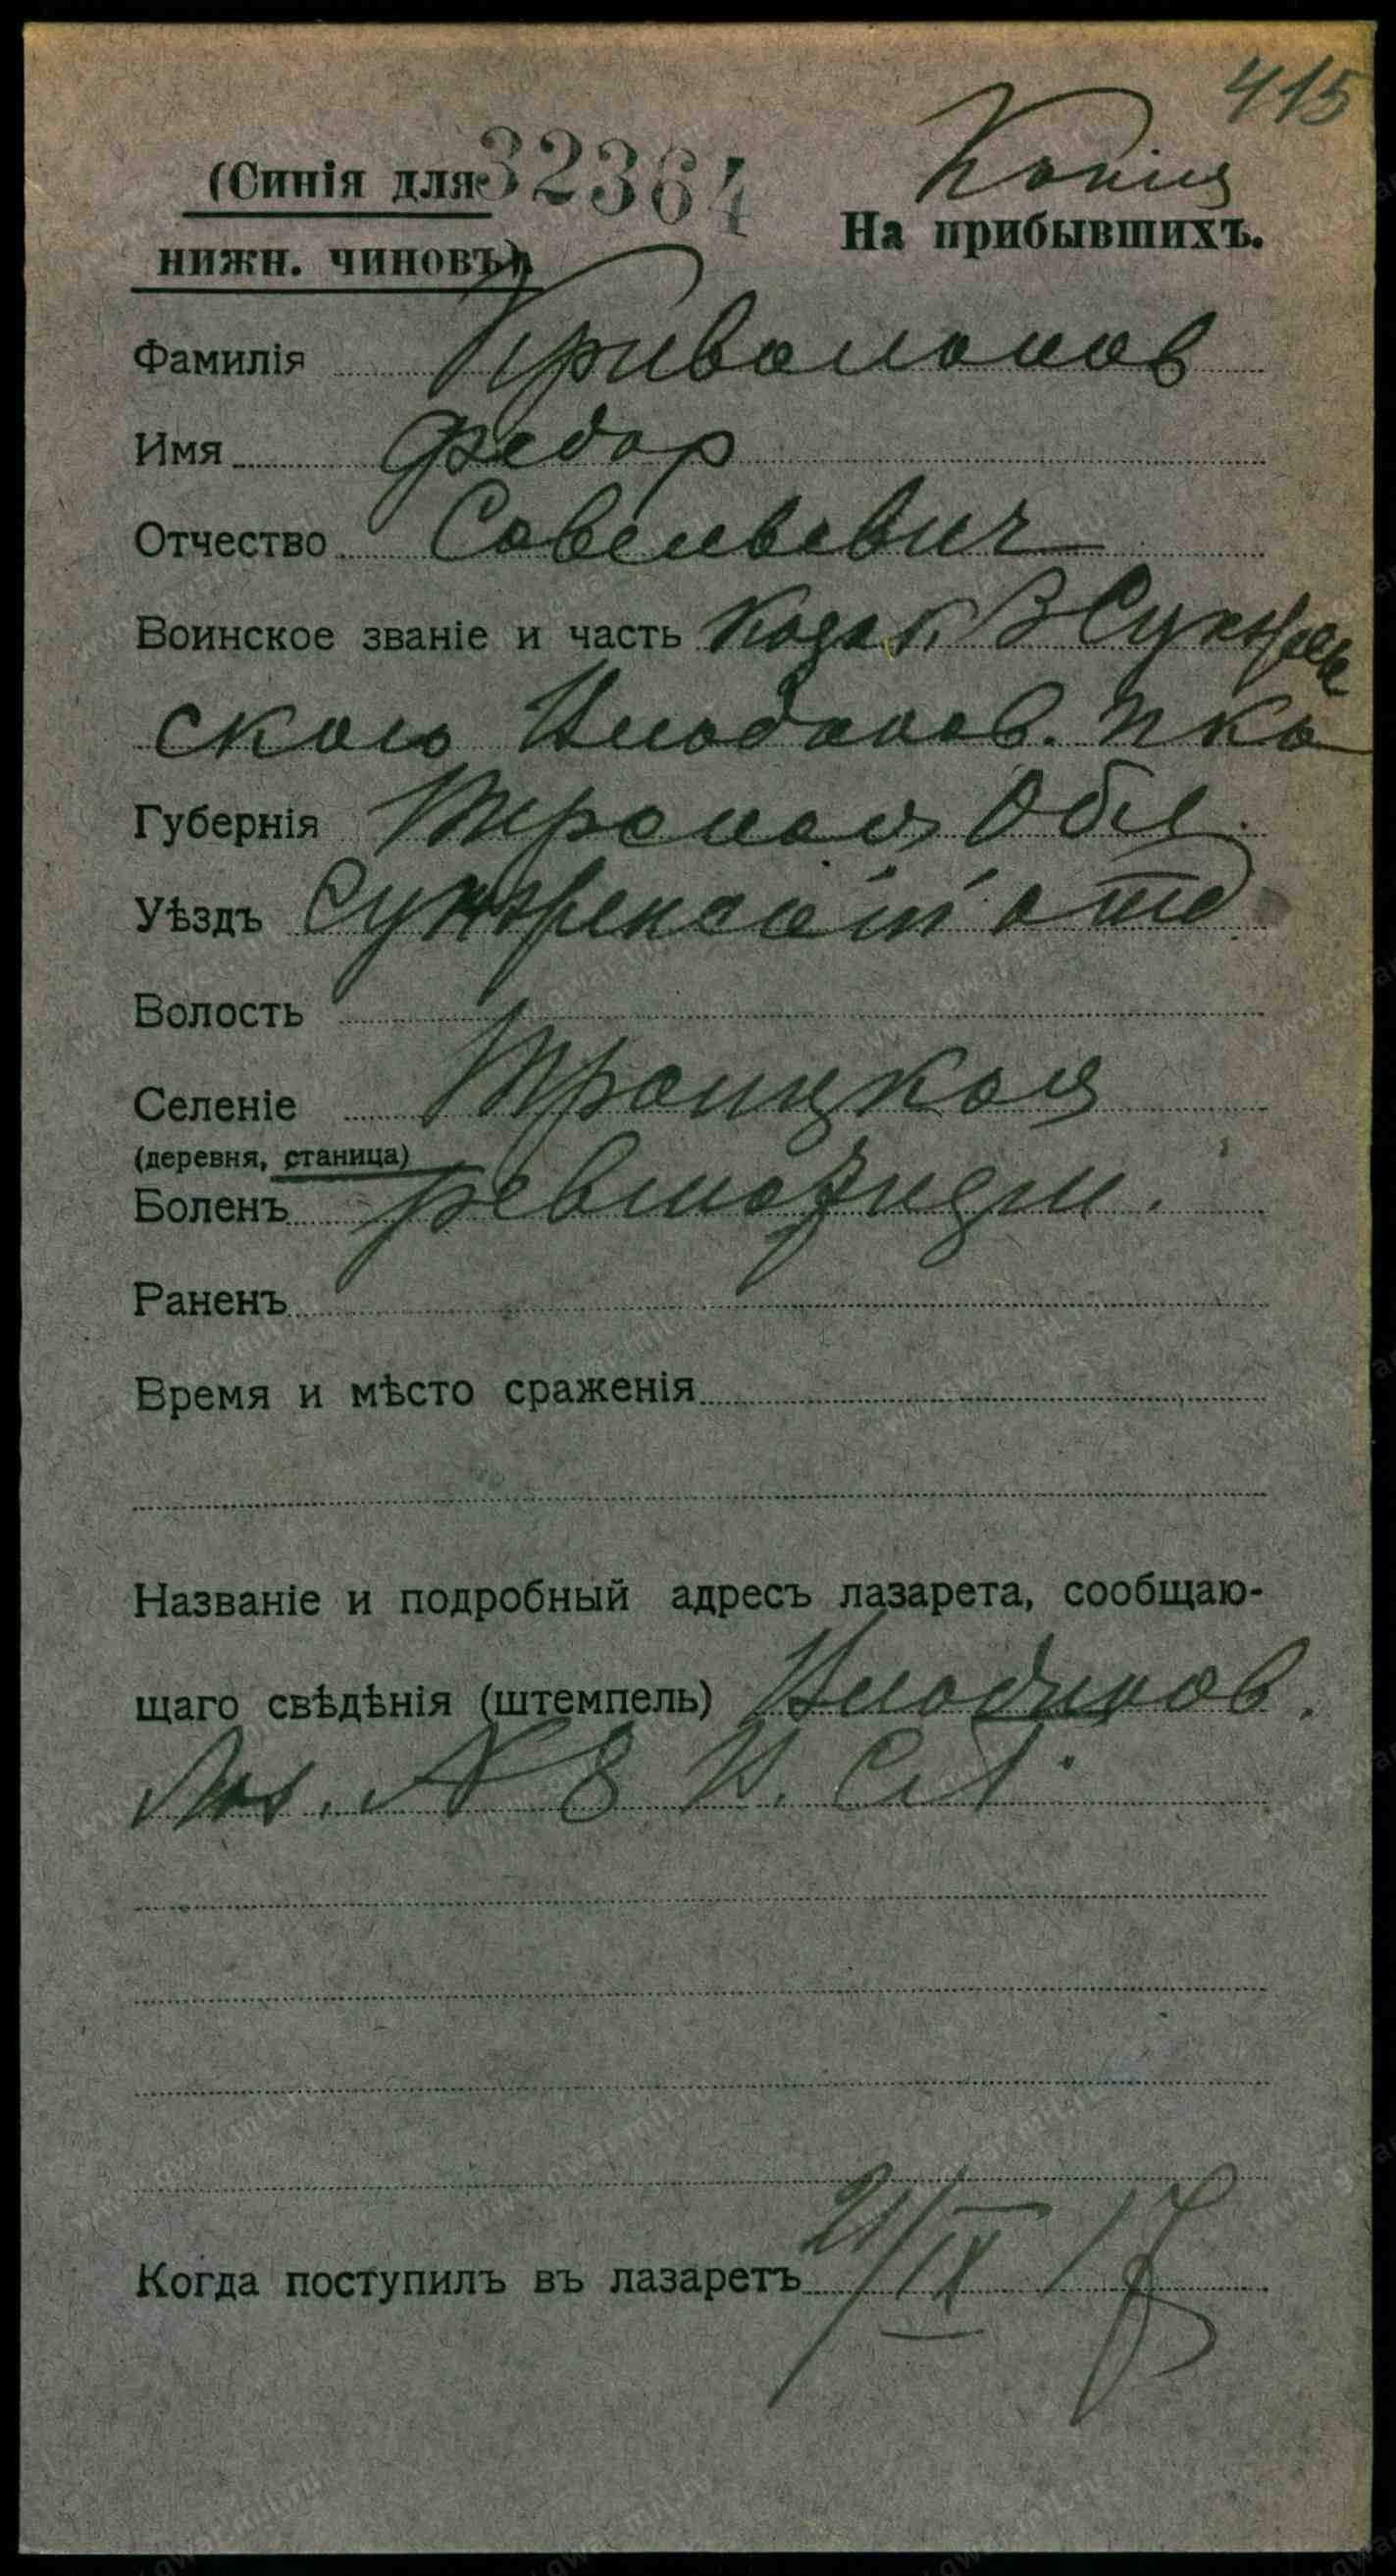 415
Копия
(Синія для 32364
На прибывшихъ.
нижн. чиновъ)
Фамилія Кривоносов
Имя Федор
Отчество Савельевич
Воинское званіе и часть Козак 3 Сунжен
ского полка
Губернія Терская Обл.
Уѣздъ Сунженский отд
Волость
Селеніе Троицкая
(деревня, станица)
Боленъ ревматизм.
Раненъ
Время и мѣсто сраженія
Названіе и подробный адресъ лазарета, сообщаю-
щаго свѣдѣнія (штемпель)
Лаз. № 8
Когда поступилъ въ лазаретъ 21/IX 17